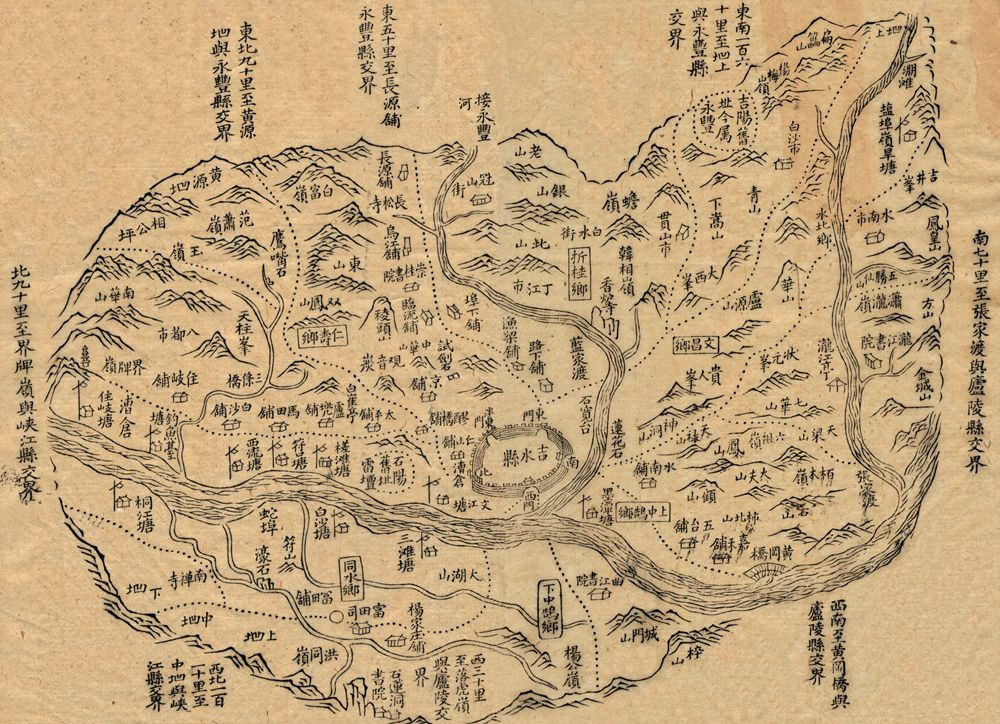 東南一百六
十里至地上
與永豐縣
交界
東五十里至長源舖
永豐縣交界
東北九十里至黃源
地與永豐縣交界
北九十里至界牌嶺與峽江縣交界
西北一百
二十里至
中地與峽
江縣交界
西二十里
至落虎嶺
與廬陵交
界
西南至黃岡橋與
廬陵縣交界
南七十里至張家渡與廬陵縣交界
接永豐
河
地上
鵩灘
楊梅嶺
吉陽舊
址今属
永豐
白沙市
鹽埠嶺旱塘
吉井峯
水南市
鳳皇山
方山
瀧江書院
金城山
瀧江亭
永北鄉
老山
冠山街
銀山
蟾嶺
白水街
北山
丁江市
折桂鄉
韓相嶺
貫山市
下嵩山
青山
大西峯
盧源山
華山
文昌鄉
香爐峯
藍家渡
石瀨口
蓮花石
狀元峯
貴人峯
七華山
神洞山
天禄山
鳳山
六祖嶺
天梁山
水南舖
栢木嶺
張家渡
墨潭塘
上中鵠鄉
五台舖
黃岡橋
長源舖
長松寺
白富嶺
黃源地
相公坪
范蕭嶺
王嶺
鷹嘴石
烏江舖
崇桂書院
東山
臨流舖
双鳳山
仁壽鄉
稜頭山
埠下舖
漁梁舖
路下舖
試劒石
中華山
觀音炭
南華山
都市
天柱峯
界牌嶺
三條橋
住岐舖
住岐塘
漕倉
釣魚臺
白沙舖
馬田舖
盧兜舖
白蕉亭
太平舖
栗塘
符塘
槎灘塘
石陽
舊址
雷壇
漕倉
文江塘
吉水縣
東門
南
西門
北
小東門
桐江塘
蛇埠
白沙塘
符山
濠石
三灘塘
同水鄉
大湖山
南禪寺
下地
中地
上地
富田舖
富田司
楊家庄舖
洪同嶺
石蓮洞
書院
下中鵠鄉
曲江書院
城門山
梓山
楊公嶺